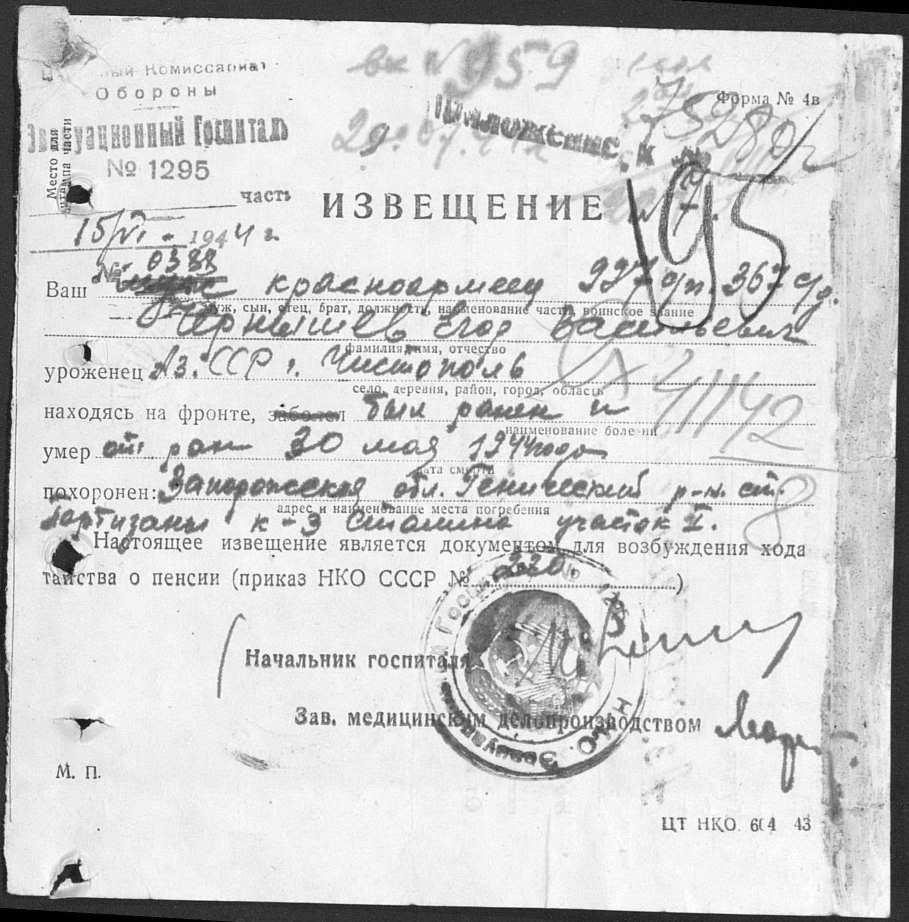 Комиссариат
Обороны
Эвакуационный Госпиталь
№ 1295
Место для
штампа части
часть
15/VI - 1944 г.
вх № 959
Форма № 4в
Приложение к №
75280
195
ИЗВЕЩЕНИЕ
№ 0388
Ваш красноармеец 997 сп. 367 сд.
муж, сын, отец, брат, должность, наименование части, воинское звание
Чернышев Егор Васильевич
фамилия, имя, отчество
уроженец Аз. ССР г. Чистополь
село, деревня, район, город, область
находясь на фронте, заболел был ранен и
наименование болезни
41142
умер от ран 30 мая 1944 года
дата смерти
похоронен: Запорожская обл. Генический р-н. ст.
адрес и наименование места погребения
Партизаны к-з Сталина участок II.
8
Настоящее извещение является документом для возбуждения хода
тайства о пенсии (приказ НКО СССР № 220 )
Начальник госпиталя
Зав. медицинским делопроизводством
М. П.
ЦТ НКО. 604 43